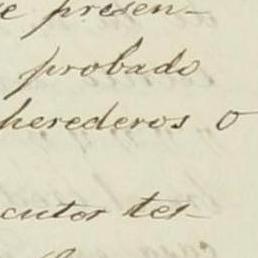 e presen-
probado
herederos o
cutor tes-